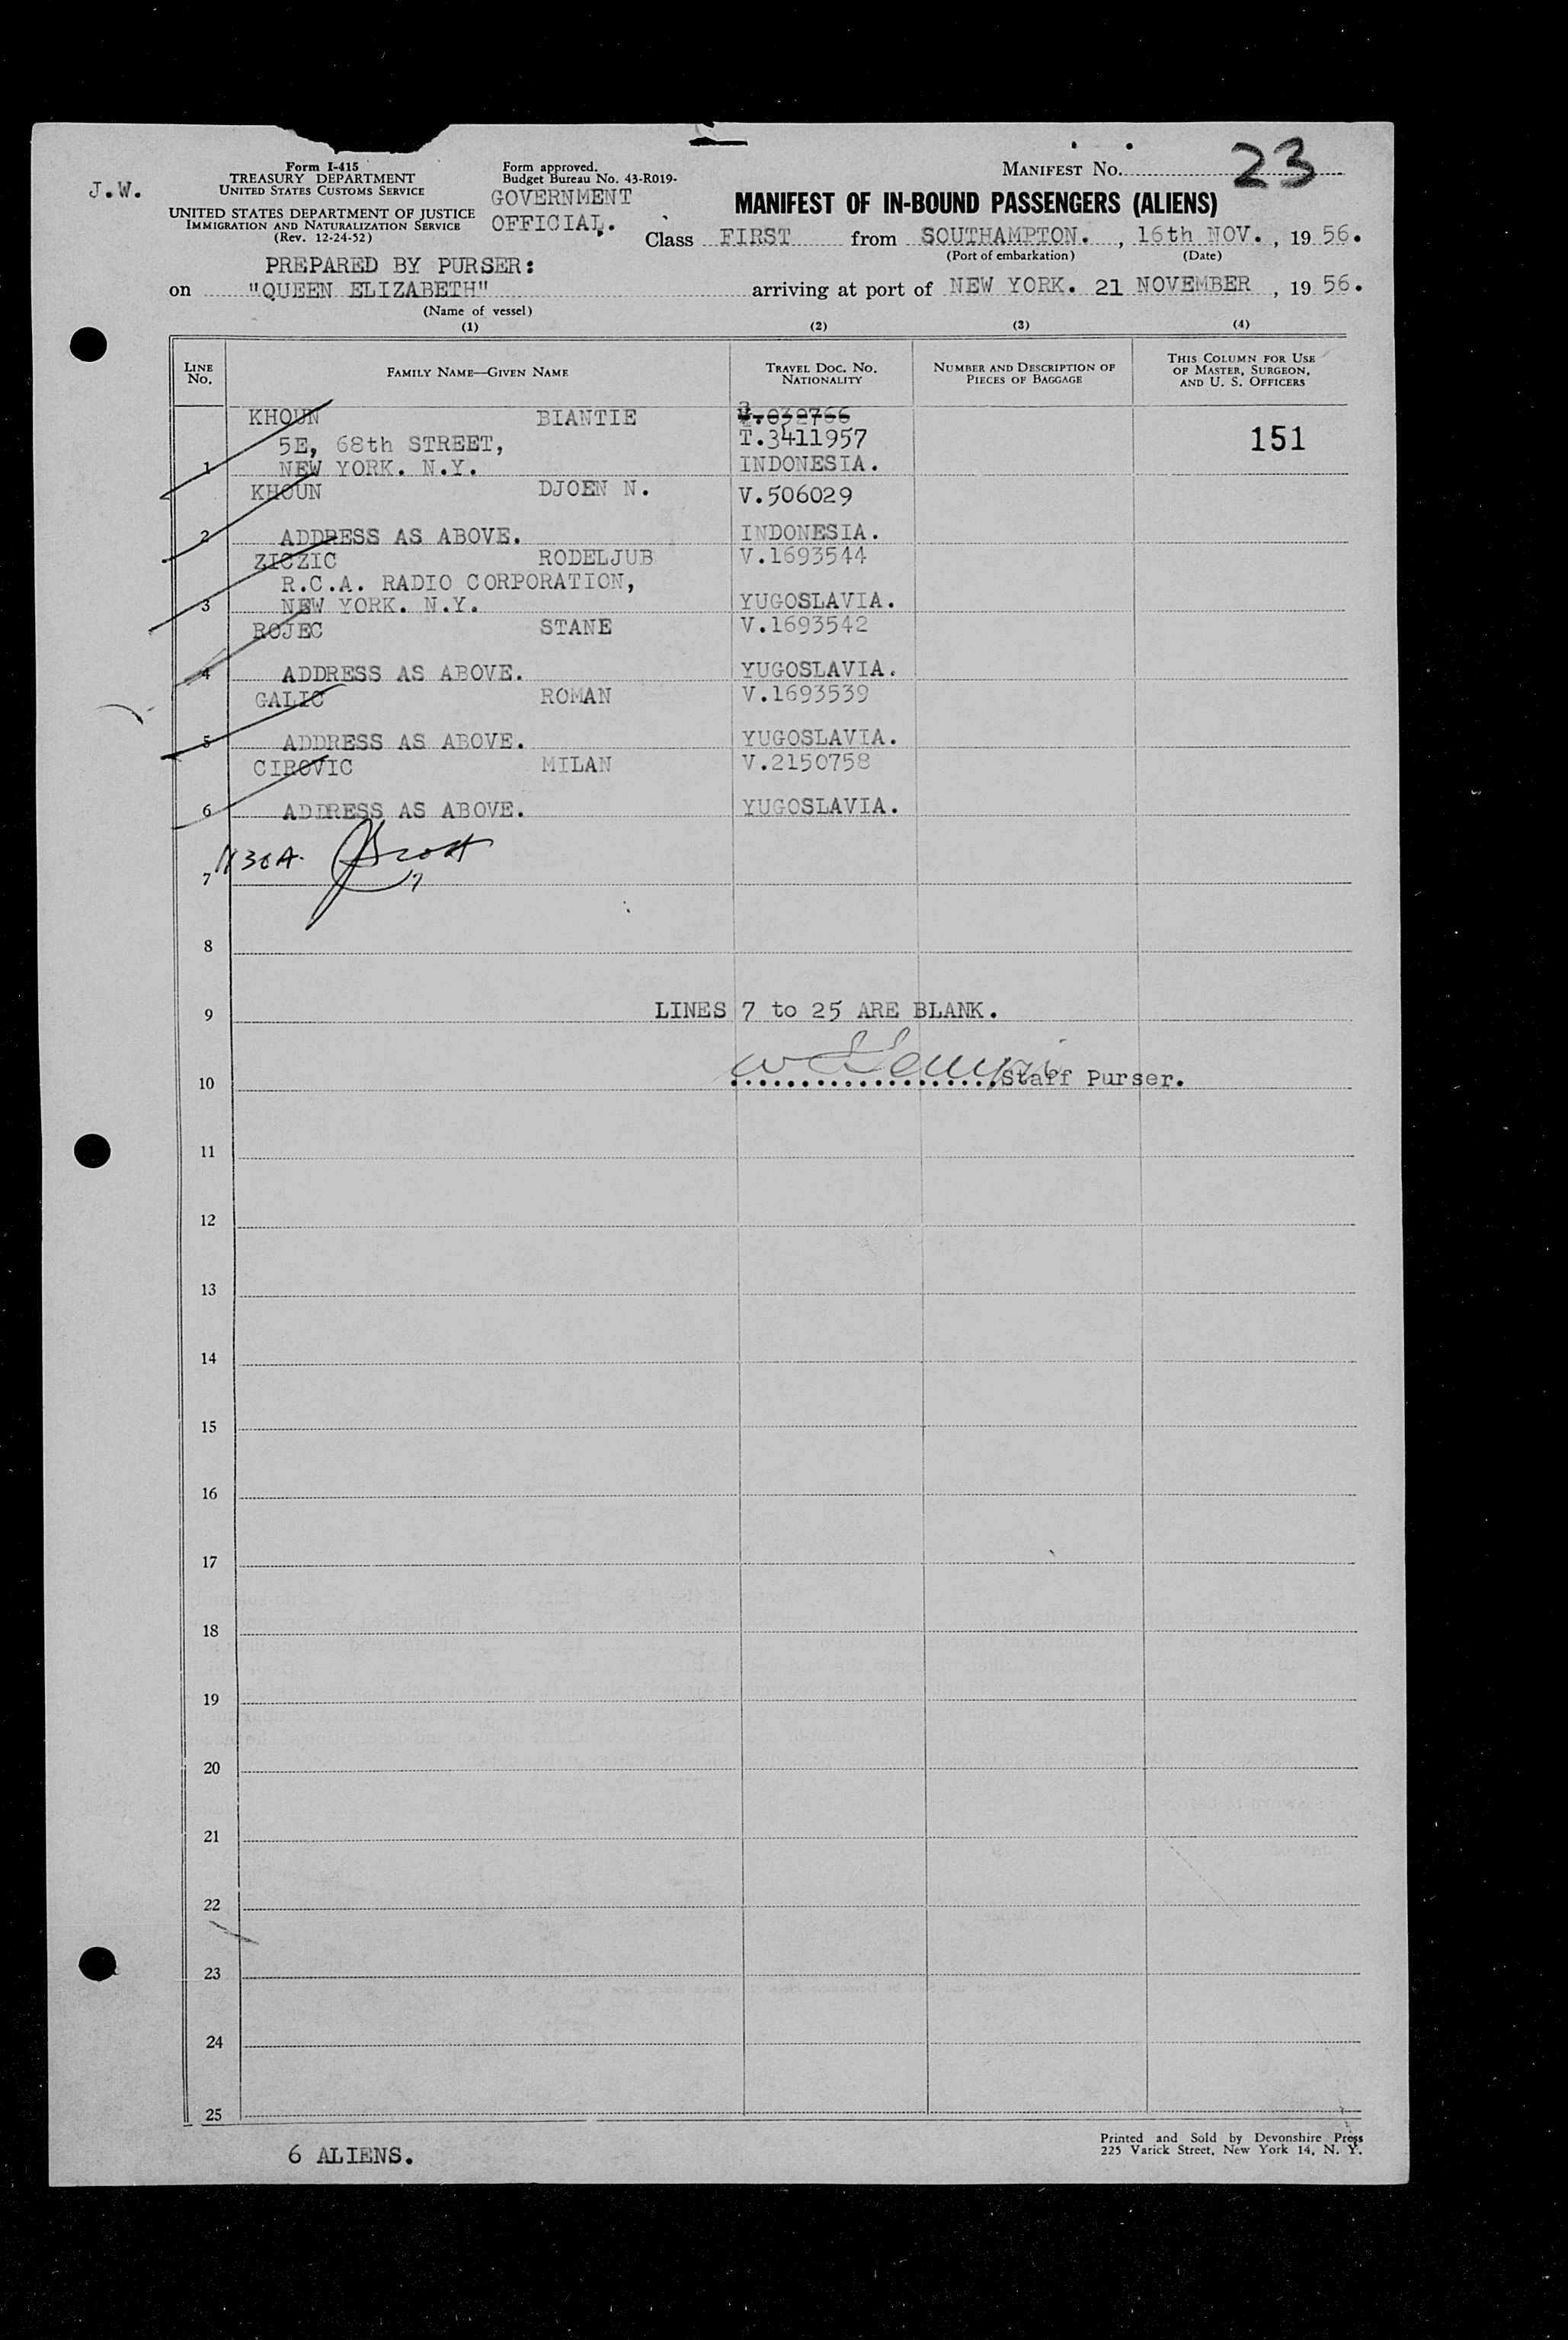 J.W.
Form I-415
TREASURY DEPARTMENT
UNITED STATES CUSTOMS SERVICE
UNITED STATES DEPARTMENT OF JUSTICE
IMMIGRATION AND NATURALIZATION SERVICE
(Rev. 12-24-52)
Form approved.
Budget Bureau No. 43-R019-
GOVERNMENT
OFFICIAL.
MANIFEST NO. 23
MANIFEST OF IN-BOUND PASSENGERS (ALIENS)
Class FIRST from SOUTHAMPTON. , 16th NOV. , 19 56.
(Port of embarkation) (Date)
PREPARED BY PURSER:
on "QUEEN ELIZABETH" arriving at port of NEW YORK. 21 NOVEMBER , 19 56.
(Name of vessel)
(1) (2) (3) (4)
LINE NO. FAMILY NAME—GIVEN NAME TRAVEL DOC. NO. NATIONALITY NUMBER AND DESCRIPTION OF PIECES OF BAGGAGE THIS COLUMN FOR USE OF MASTER, SURGEON, AND U. S. OFFICERS
KHOUN BIANTIE
5E, 68th STREET, T.3411957 151
1 NEW YORK. N.Y. INDONESIA.
KHOUN DJOEN N. V.506029
2 ADDRESS AS ABOVE. INDONESIA.
ZICZIC RODELJUB V.1693544
R.C.A. RADIO CORPORATION,
3 NEW YORK. N.Y. YUGOSLAVIA.
ROJEC STANE V.1693542
4 ADDRESS AS ABOVE. YUGOSLAVIA.
GALIC ROMAN V.1693539
5 ADDRESS AS ABOVE. YUGOSLAVIA.
CIROVIC MILAN V.2150758
6 ADDRESS AS ABOVE. YUGOSLAVIA.
7
8
9 LINES 7 to 25 ARE BLANK.
10 Staff Purser.
11
12
13
14
15
16
17
18
19
20
21
22
23
24
25
6 ALIENS.
Printed and Sold by Devonshire Press
225 Varick Street, New York 14, N. Y.